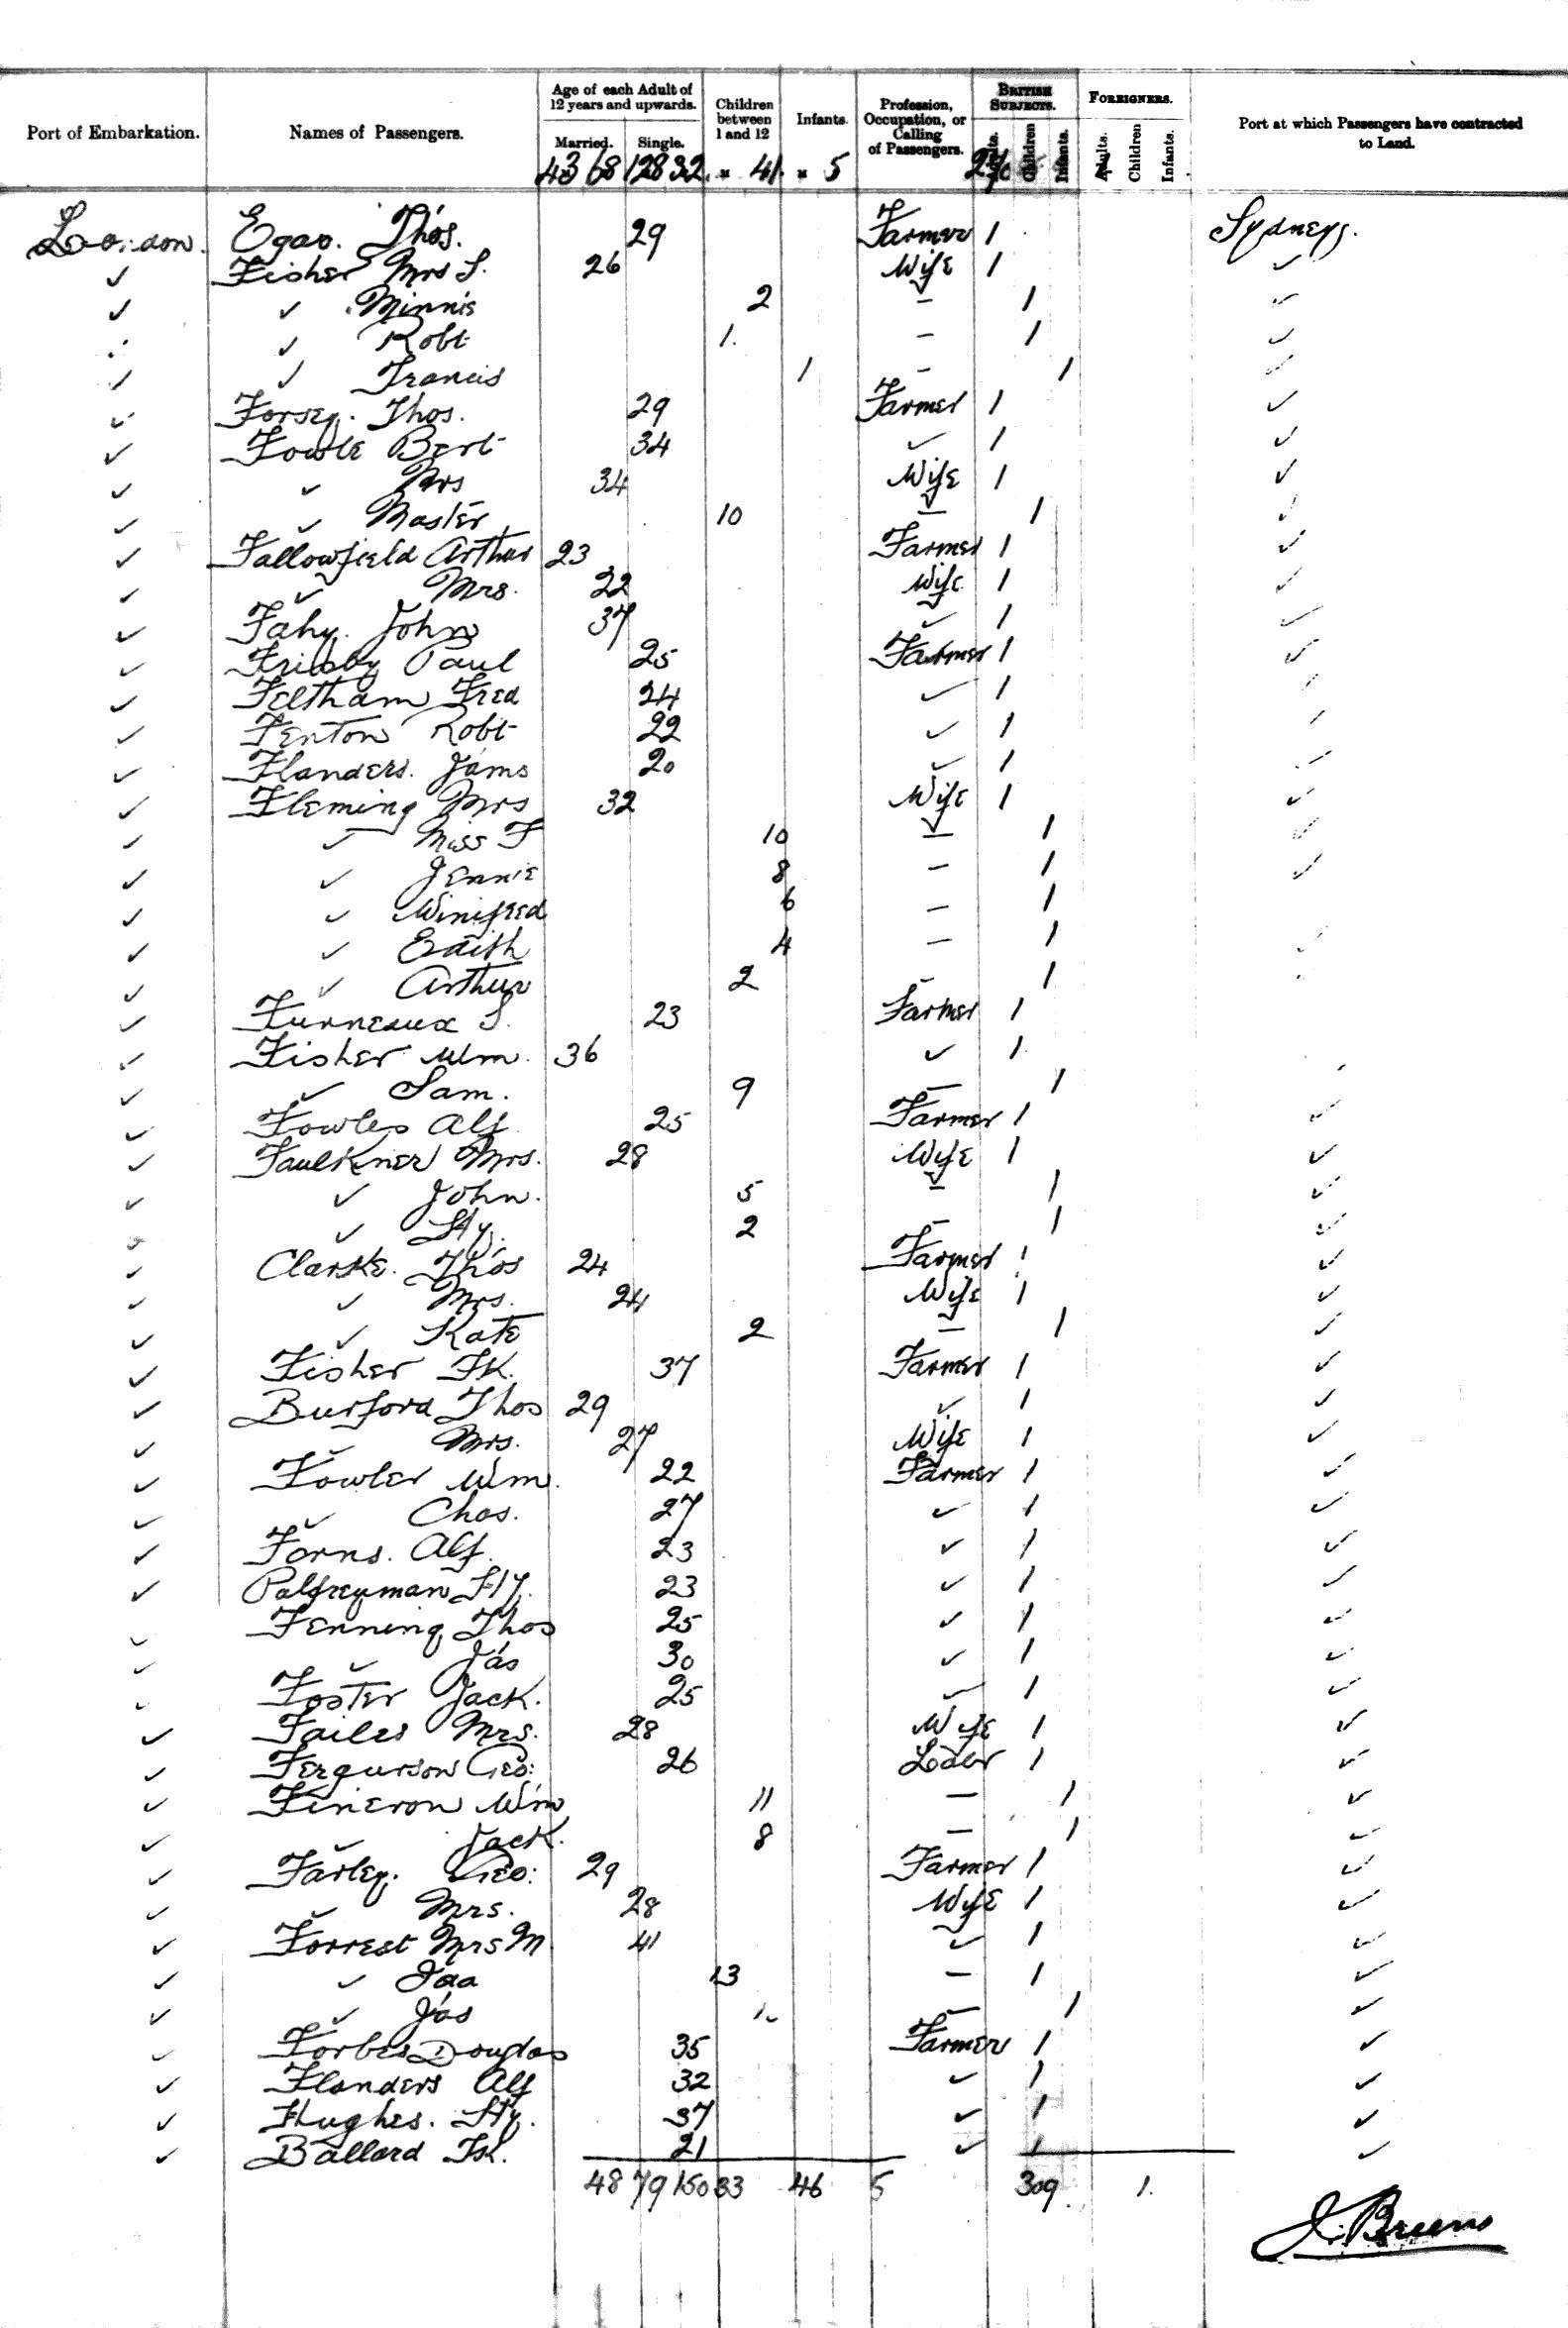 Port of Embarkation. Names of Passengers. Age of each Adult of 12 years and upwards. Married. Single. Children between 1 and 12 Infants. Profession, Occupation, or Calling of Passengers. BRITISH SUBJECTS. Adults. Children Infants. FOREIGNERS. Adults. Children Infants. Port at which Passengers have contracted to Land.
43 68 128 32 41 5
London. Egan. Thos. 29 Farmer 1 Sydney.
✓ Fisher Mrs S. 26 Wife 1 ✓
✓ ✓ Minnie 2 – 1 ✓
✓ ✓ Robt 1. – 1 ✓
✓ ✓ Francis 1 – 1 ✓
✓ Forsey. Thos. 29 Farmer 1 ✓
✓ Fowle Bert 34 ✓ 1 ✓
✓ ✓ Mrs 34 Wife 1 ✓
✓ ✓ Master 10 – 1 ✓
✓ Fallowfield Arthur 23 Farmer 1 ✓
✓ ✓ Mrs. 22 Wife 1 ✓
✓ Fahy. John 37 ✓ 1 ✓
✓ Frisby Paul 25 Farmer 1 ✓
✓ Feltham Fred 24 ✓ 1 ✓
✓ Fenton Robt 22 ✓ 1 ✓
✓ Flanders. Jams 20 ✓ 1 ✓
✓ Fleming Mrs 32 Wife 1 ✓
✓ ✓ Miss F 10 – 1 ✓
✓ ✓ Jennie 8 – 1 ✓
✓ ✓ Winifred 6 – 1
✓ ✓ Edith 4 – 1 ✓
✓ ✓ Arthur 2 – 1
✓ Furneaux S. 23 Farmer 1
✓ Fisher Wm. 36 ✓ 1
✓ ✓ Sam. 9 – 1 ✓
✓ Fowles Alf 25 Farmer 1 ✓
✓ Faulkner Mrs. 28 Wife 1 ✓
✓ ✓ John. 5 – 1 ✓
✓ ✓ Hy. 2 – 1 ✓
✓ Clarke. Thos 24 Farmer 1 ✓
✓ ✓ Mrs. 24 Wife 1 ✓
✓ ✓ Kate 2 – 1 ✓
✓ Fisher Fk. 37 Farmer 1 ✓
✓ Burford Thos 29 ✓ 1 ✓
✓ ✓ Mrs. 27 Wife 1 ✓
✓ Fowler Wm. 22 Farmer 1 ✓
✓ ✓ Chas. 27 ✓ 1 ✓
✓ Farns. Alf. 23 ✓ 1 ✓
✓ Palfreyman Hy. 23 ✓ 1 ✓
✓ Fenning Thos 25 ✓ 1 ✓
✓ ✓ Jas 30 ✓ 1 ✓
✓ Foster Jack. 25 ✓ 1 ✓
✓ Failes Mrs. 28 Wife 1 ✓
✓ Fergurson Geo: 26 Labr 1 ✓
✓ Fineron Wm 11 – 1 ✓
✓ ✓ Jack. 8 – 1 ✓
✓ Farley. Geo: 29 Farmer 1 ✓
✓ ✓ Mrs. 28 Wife 1 ✓
✓ Forrest Mrs M 41 ✓ 1 ✓
✓ ✓ Ida 13 – 1 ✓
✓ ✓ Jas – 1 ✓
✓ Forbes Douglas 35 Farmer 1 ✓
✓ Flanders Alf 32 ✓ 1 ✓
✓ Hughes. Hy. 37 ✓ 1 ✓
✓ Ballard Fk. 21 ✓ 1 ✓
48 79 150 33 46 5 309 1.